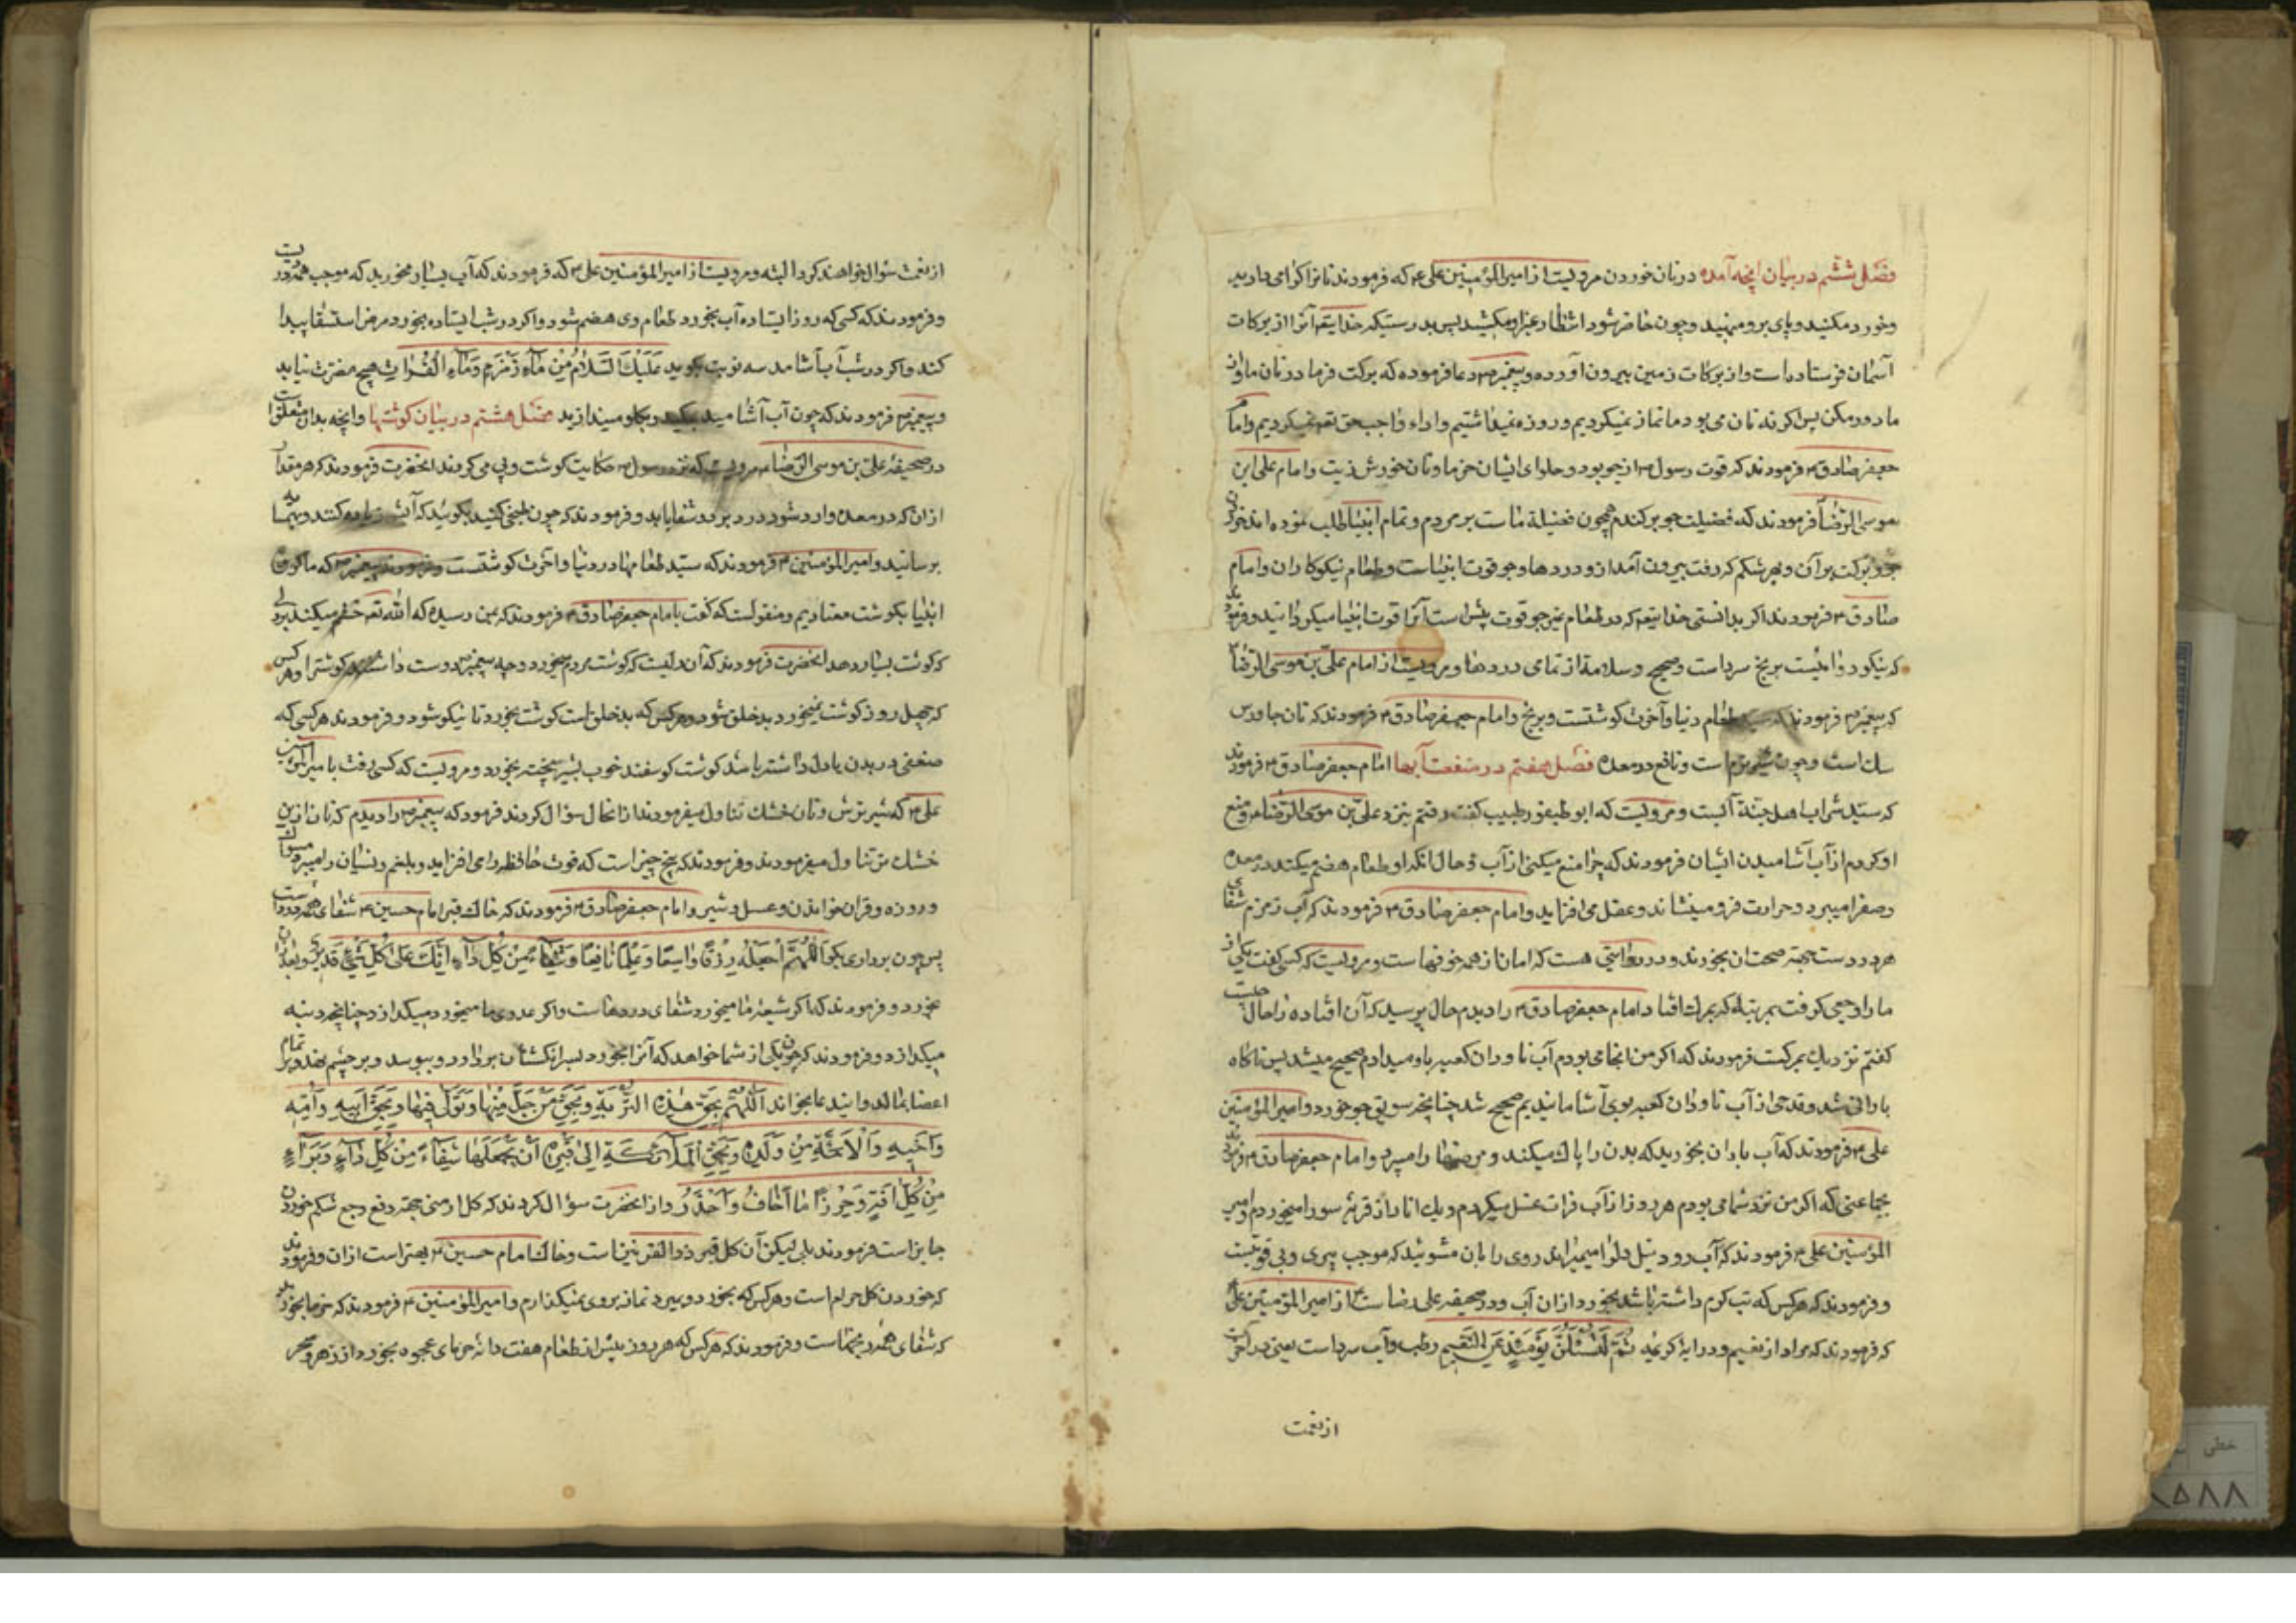 فصل ششم در بیان انچه آمده در نان خوردن مرویست از امیرالمؤمنین علی ع که فرمودند نانرا کرامی دارید
وخورد مکنید و پای برو منهید وچون حاضر شود انتظار غیر او مکشید پس بدرستیکه خدایتعه آنرا از برکات
آسمان فرستاده است واز برکات زمین بیرون آورده وپیغمبر ص دعا فرموده که برکت فرما در نان ما واز
ما دور مکن پس اکر نه نان می بود ما نماز نمیکردیم و روزه نمیداشتیم واداء واجب حق تعه نمیکردیم وامام
جعفر صادق ع فرمودند که قوت رسول ص از جو بود و حلوای ایشان خرما ونان خورش زیت وامام علی ابن
موسی الرضا فرمودند که فضیلت جو بر کندم همچون فضیلة ماست بر مردم وتمام انبیا طلب نموده اند خوردن
جو و برکت بر آن و بهر شکم که رفت بیرون آمد از و دردها وجو قوت انبیاست وطعام نیکوکاران وامام
صادق ع فرمودند اکر بدانستی خدایتعه که در طعام غیر جو قوت بیش است آنرا قوت انبیا میکردانید وفرمودند
که نیکو دوائیست برنج سرد است وصحیح وسلامة از تمامی دردها ومرویست از امام علی بن موسی الرضا ع
که پیغمبر ص فرمودند که سید طعام دنیا وآخرت کوشتست وبرنج وامام جعفر صادق ع فرمودند که نان جاورس
سک است وچون شیر نرم است ونافع در معده فصل هفتم در منفعت آبها امام جعفر صادق ع فرمودند
که سید شراب اهل جنة آبست ومرویست که ابوطیفور طبیب کفت رفتم نزد علی بن موسی الرضا ع ومنع
او کردم از آب آشامیدن ایشان فرمودند که چرا منع میکنی از آب وحال انکه او طعام هضم میکند در معده
وصفرا میبرد وحرارت فرو مینشاند وعقل می افزاید وامام جعفر صادق ع فرمودند که آب زمزم شفای
هر درد ست جهة صحت ان بخورند و در روایتی هست که امان از همه خوفهاست ومرویست که کسی کفت یکی از
ما را وجعی کرفت بمرتبه که بمرک افتاد امام جعفر صادق ع را دیدم حال پرسید که آن افتاده را حال چیست
کفتم نزدیک بمرکست فرمودند که اکر من انجا می بودم آب ناودان کعبه باو میدادم صحیح میشد پس ناکاه
بارانی شد وقدحی از آب ناودان کعبه بوی آشامانیدیم صحیح شد چنانچه سویق جو خورد وامیرالمؤمنین
علی ع فرمودند که آب باران بخورید که بدن را پاک میکند ومرضها را میبرد وامام جعفر صادق ع فرمودند
بجماعتی که اکر من نزد شما می بودم هر روز از آب فرات غسل میکردم ویک انار از قریه سورا میخوردم وامیر
المؤمنین علی ع فرمودند که آب رود نیل دلرا میمیراند روی را بان مشوئید که موجب پیری و بی قوتیست
و فرمودند که هر کس که تب کرم داشته باشد بخورد از ان آب ودر صحیفه علی رضا ست از امیرالمؤمنین علی ع
که فرمودند که مراد از نعیم ودر آیهٔ کریمه ثُمَّ لَتُسْئَلُنَّ یَوْمَئِذٍ عَنِ النَّعِیمِ رطب وآب سرد است یعنی در آخرت
از نعمت
از نعمت سؤال خواهند کرد البته ومرویست از امیرالمؤمنین علی ع که فرمودند که آب بسیار مخورید که موجب همه دردست
و فرمودند که کسی که روز ایستاده آب بخورد طعام وی هضم شود واکر در شب ایستاده بخورد مرض استسقا پیدا
کند واکر در شب آب بآشامد سه نوبت بکوید عَلَیْكَ السَّلامُ مِنْ مَاءِ زَمْزَمَ وَمَاءِ الْفُراتِ هیچ مضرت نیابد
و پیغمبر ص فرمودند که چون آب آشامید بمکید وبکلو میندازید فصل هشتم در بیان کوشتها وانچه بدان متعلق است
در صحیفه علی بن موسی الرضا ع مرویست که نزد رسول ص حکایت کوشت وپی می کردند انحضرت فرمودند که هر مقدار
از ان که در معده وارد شود درد برود شفا یابد و فرمودند که چون طبخی کنید بکوئید که آبش زیاده کنند وبهمسایه
برسانید وامیرالمؤمنین ع فرمودند که سید طعامها در دنیا وآخرت کوشتست وفرمودند پیغمبر ص که ما کروه
انبیا بکوشت معتادیم ومنقولست که کفت با امام جعفر صادق ع فرمودند که بمن رسیده که الله تعه خشم میکند بر دلی
که کوشت بسیار دهد انحضرت فرمودند که آن دلیست که کوشت مردم بخورد وچه پیغمبر ص دوست داشته کوشترا وهر کس
که چهل روز کوشت نمیخورد بدخلق شود وهر کس که بدخلق است کوشت بخورد تا نیکو شود وفرمودند هر کسی که
ضعفی در بدن یا دل داشته باشد کوشت کوسفند خوب بشیر پخته بخورد ومرویست که کسی رفت با میرالمؤمنین
علی ع که شیر ترش ونان خشک تناول میفرمودند از انحال سؤال کردند فرمود که پیغمبر ص را دیدم که نان از این
خشک تر تناول میفرمودند وفرمودند که پنج چیز است که قوت حافظه را می افزاید وبلغم ونسیان را میبرد مسواک
وروزه وقران خواندن وعسل وشیر وامام جعفر صادق ع فرمودند که خاک قبر امام حسین ع شفای همه دردهاست
پس چون برداری بکو اَللّٰهُمَّ اجْعَلْهُ رِزْقًا وَاسِعًا وَعِلْمًا نَافِعًا وَشِفَاءً مِنْ كُلِّ دَاءٍ اِنَّكَ عَلٰى كُلِّ شَيْءٍ قَدِيرٌ وبعد از ان
بخورد وفرمودند که اکر شیعهٔ ما میخورد شفای دردهاست واکر عدوی ما میخورد میکدازد چنانچه دنبه
میکدازد وفرمودند که چون یکی از شما خواهد که آنرا بخورد بسر انکشتان بردارد وببوسد وبر چشم نهد وبر تمام
اعضا بمالد وانید عا بخواند اَللّٰهُمَّ بِحَقِّ هٰذِهِ التُّرْبَةِ وَبِحَقِّ مَنْ حَلَّ بِهَا وَثَوٰى فِيهَا وَبِحَقِّ اَبِيهِ وَاُمِّهِ
وَاَخِيهِ وَالْاَئِمَّةِ مِنْ وَلَدِهِ وَبِحَقِّ الْمَلَائِكَةِ اِلٰى قَبْرِهِ اَنْ تَجْعَلَهَا شِفَاءً مِنْ كُلِّ دَاءٍ وَبَرَاءً
مِنْ كُلِّ اٰفَةٍ وَحِرْزًا مَا اَخَافُ وَاَحْذَرُ واز انحضرت سؤال کردند که کل ارمنی جهة دفع وجع شکم خوردن
جایز است فرمودند بلی لیکن آن کل قبر ذو القرنین است وخاک امام حسین ع بهتر است از ان وفرمودند
که خوردن کل حرام است وهر کس که بخورد وبمیرد نماز بر وی نمیکذارم وامیرالمؤمنین ع فرمودند که خرما بخورید
که شفای همه رنجهاست وفرمودند که هر کس که هر روز پیش از طعام هفت دانه خرمای عجوه بخورد از زهر وسحر